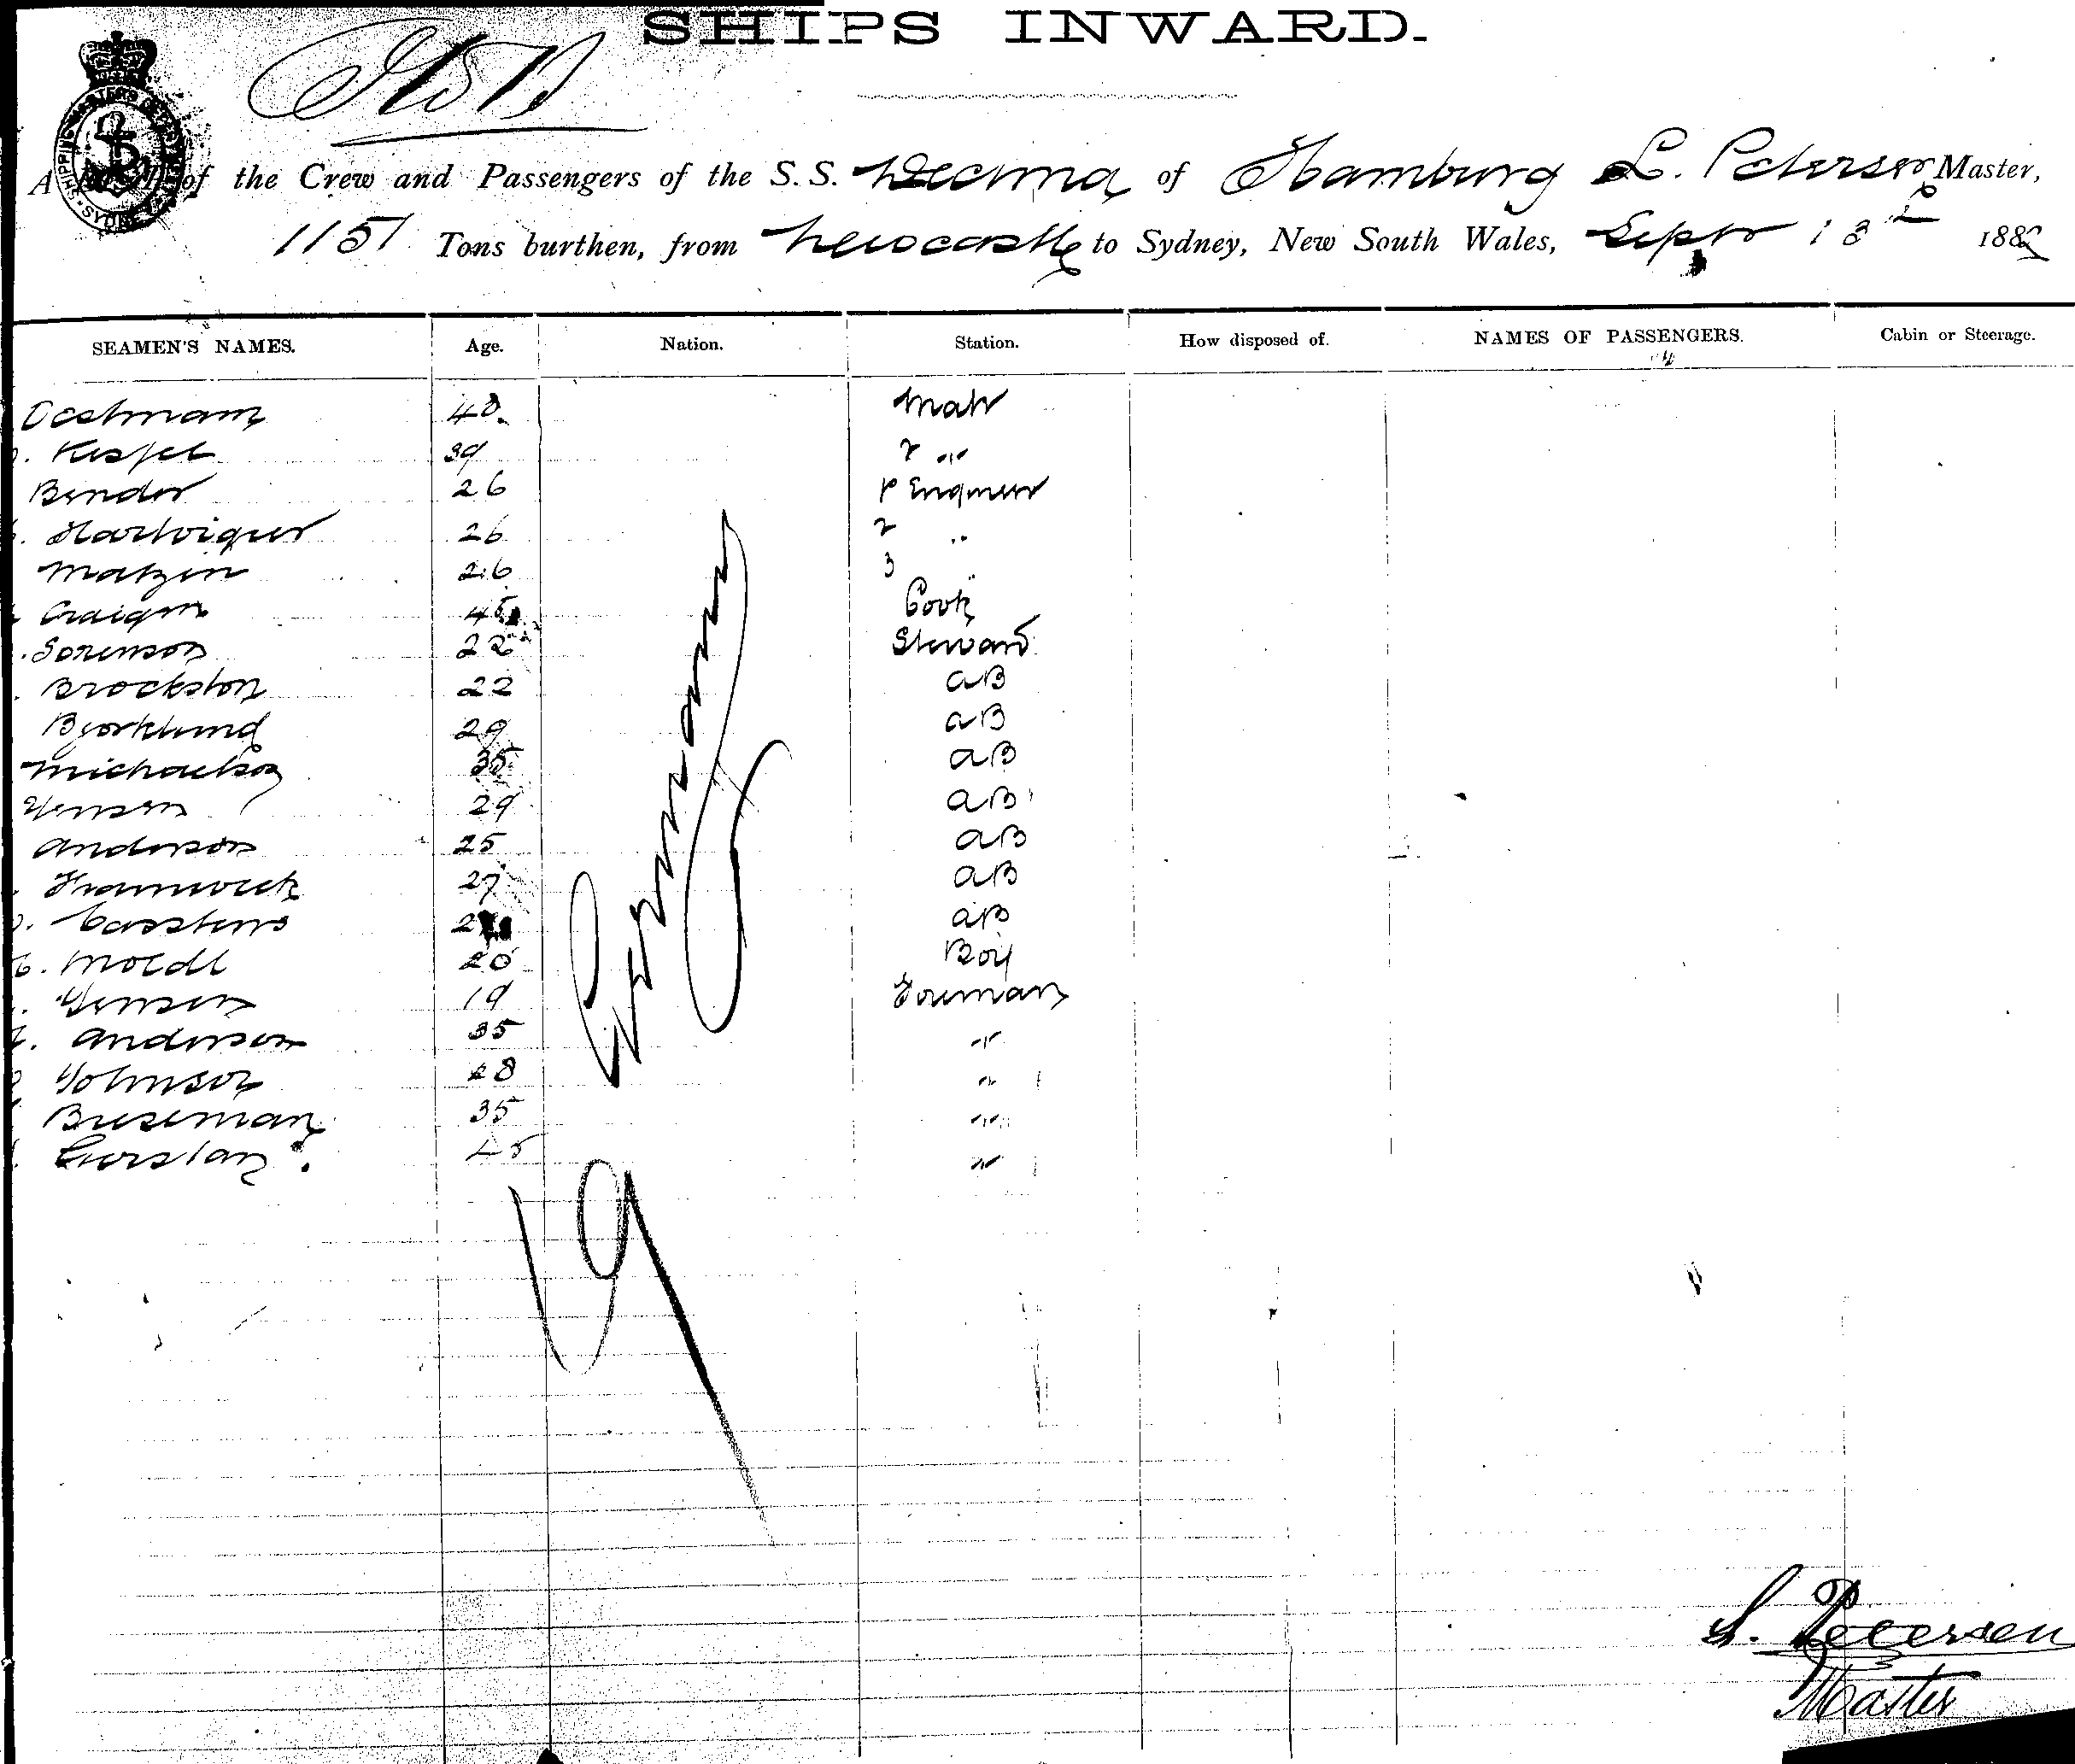 SHIPS INWARD.
A of the Crew and Passengers of the S.S. Decima of Hamburg L. Peterson Master,
1151 Tons burthen, from Newcastle to Sydney, New South Wales, Septr 13 188
SEAMEN'S NAMES. Age. Nation. Station. How disposed of. NAMES OF PASSENGERS. Cabin or Steerage.
40 Mate
39 2 "
Bender 26 1st Engineer
26 2 "
Matzen 26 3 "
45 Cook
Sorenson 22 Steward
Brockston 22 AB
Bjorklund 29 AB
Michaelson 35 AB
Yensen 29 AB
Anderson 25 AB
27 AB
Carstens AB
20 Boy
Yensen 19 Foreman
Anderson 35 "
Yohnson 28 "
Buseman 35 "
45 "
Germany
19
L. Petersen
Master